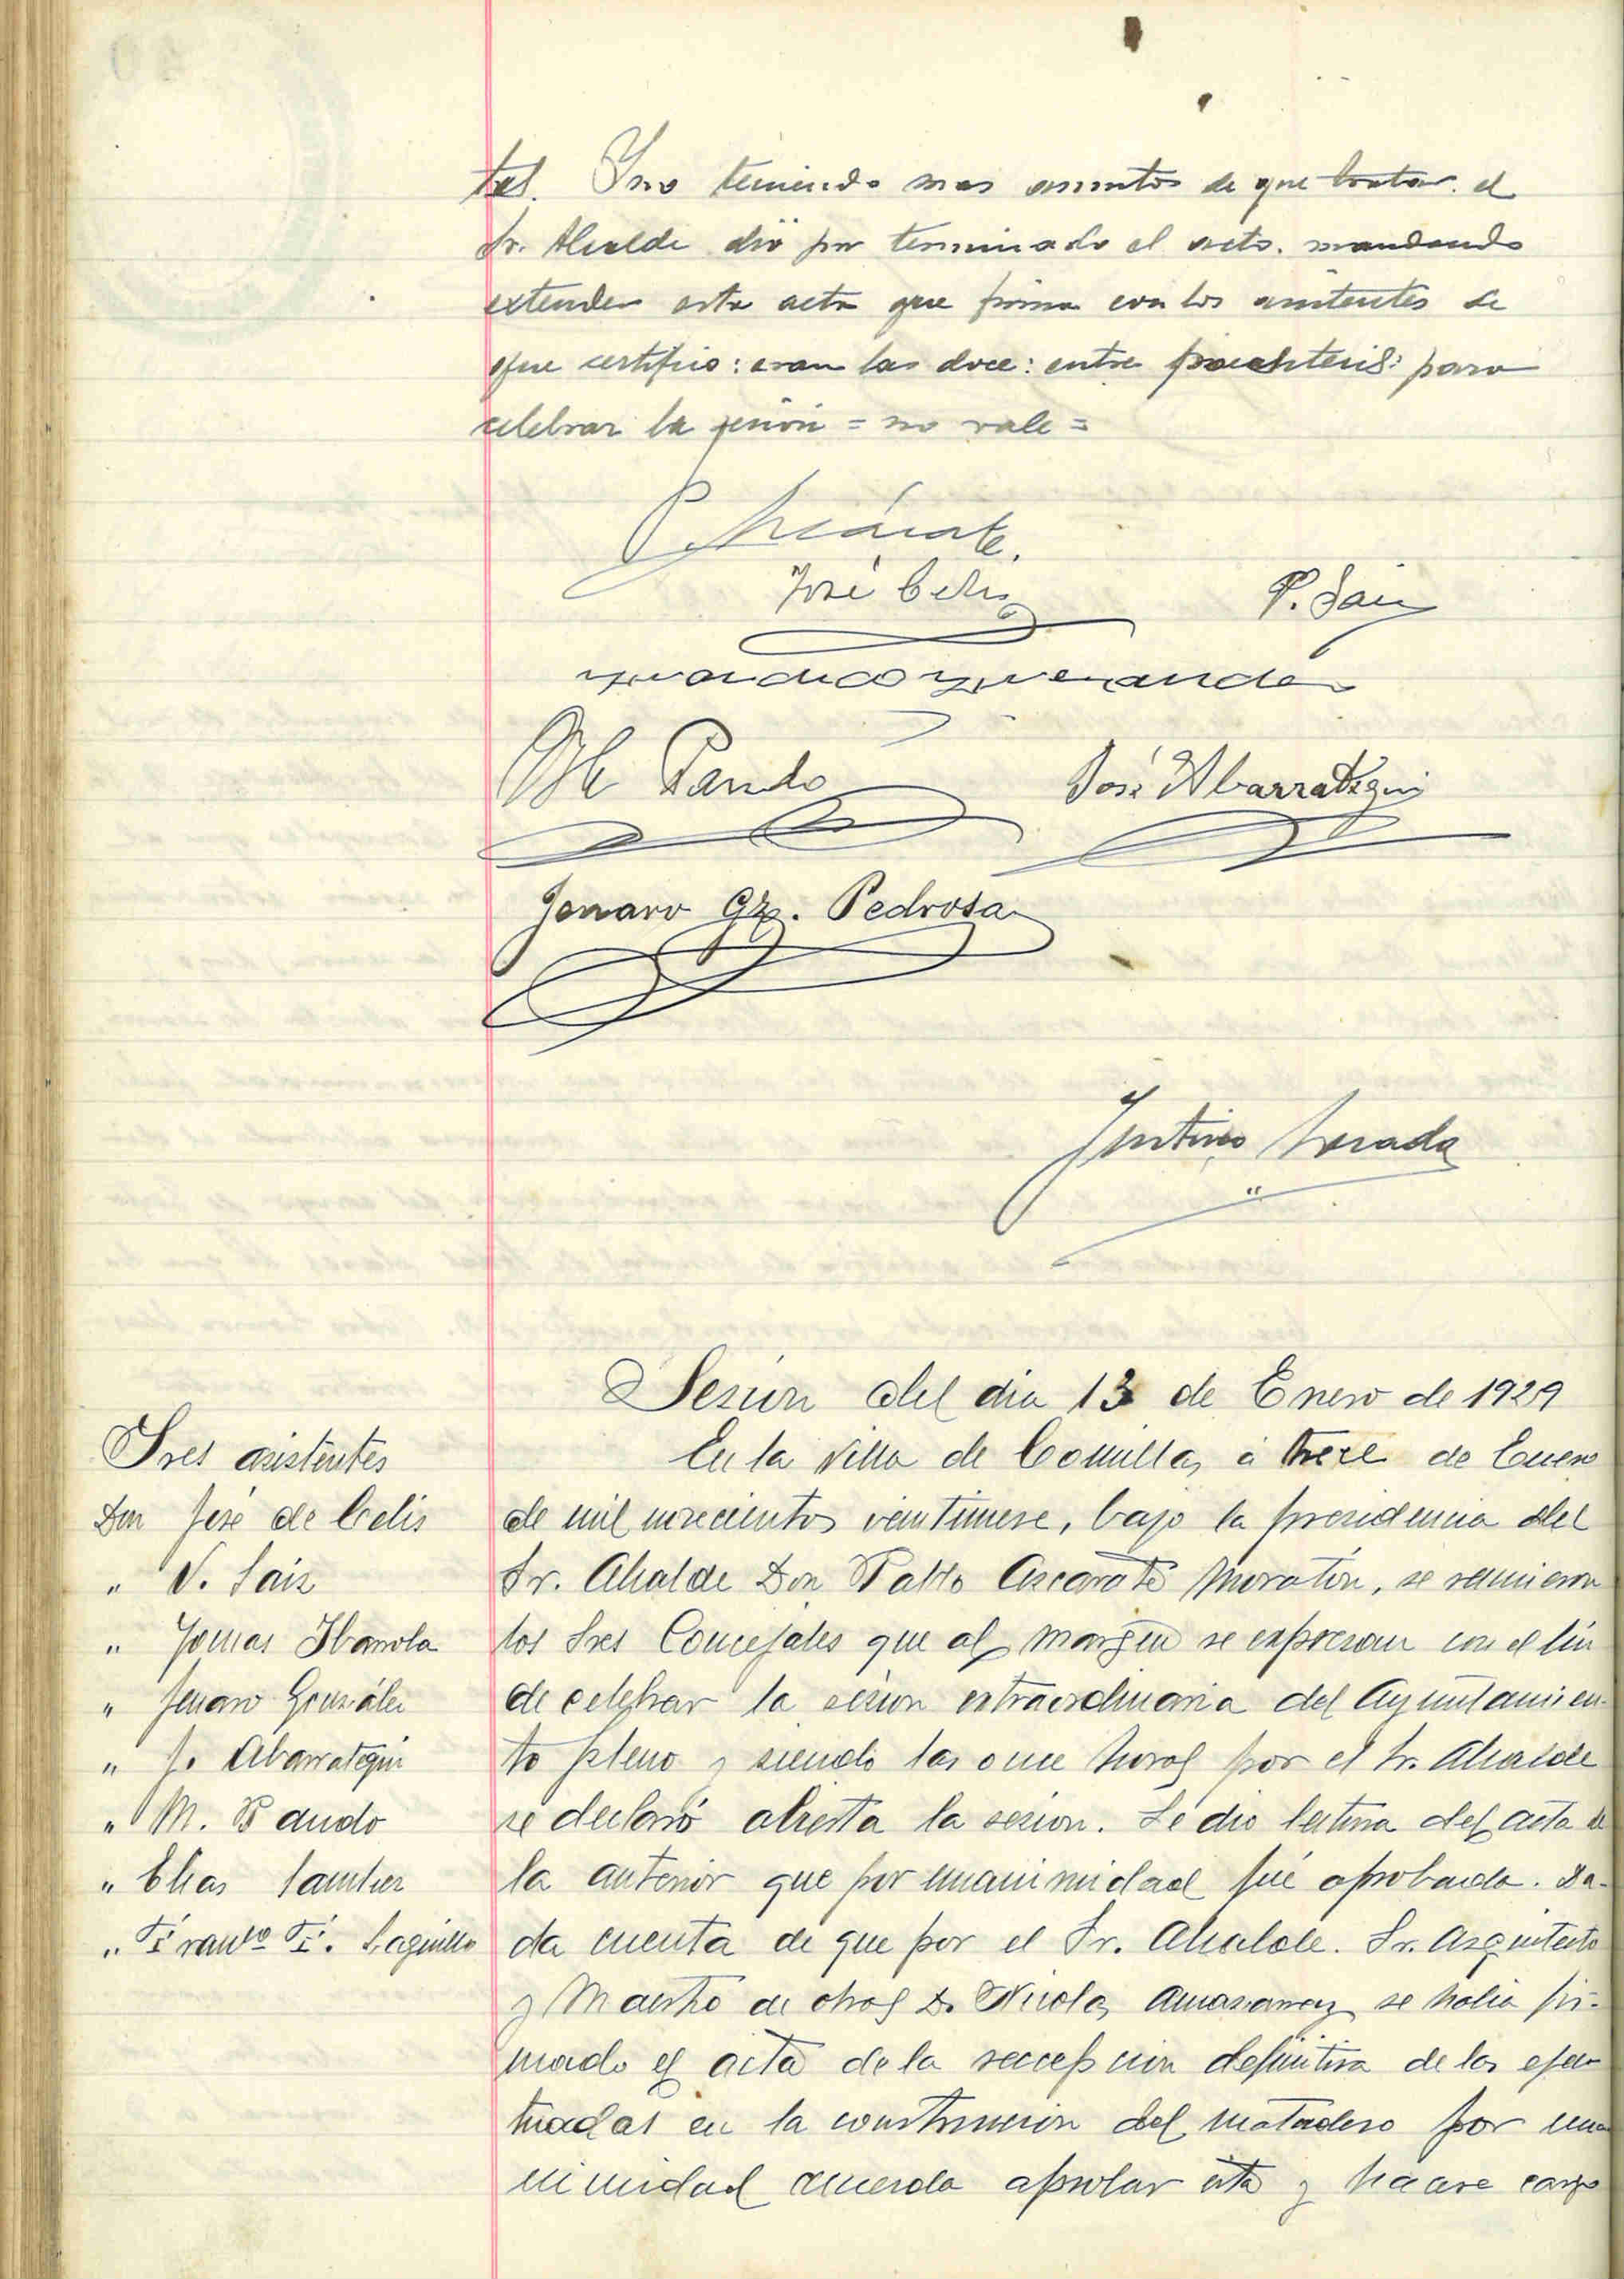 tes. Y no teniendo mas asuntos de que tratar. el
Sr. Alcalde dió por terminado el acto. mandando
extender esta acta que firma con los asistentes de
que certifico: eran las doce: entre parentesis: para
celebrar la sesión = no vale =
P. Azcárate.
José Celis
P. Saiz
M Pando
José Abarrategui
Jenaro Gz. Pedrosa
Justino Posada
Sesion del dia 13 de Enero de 1929
Sres asistentes
Don José de Celis
" V. Saiz
" Tomas Ibarrola
" Jenaro González
" J. Abarrategui
" M. Pando
" Elias
" Franco F. Laguillo
En la Villa de Comillas, á trece de Enero
de mil novecientos veintinueve, bajo la presidencia del
Sr. Alcalde Don Pablo Azcarate Moratin, se reunieron
los Sres Concejales que al margen se expresan con el fin
de celebrar la sesion extraordinaria del Ayuntamien-
to pleno y siendo las once horas por el Sr. Alcalde
se declaró abierta la sesion. Se dio lectura del acta de
la anterior que por unanimidad fué aprobada. Da-
da cuenta de que por el Sr. Alcalde. Sr. Arquitecto
y Maestro de obras D. Nicolas se habia fir-
mado el acta de la recepcion definitiva de las efec-
tuadas en la construccion del matadero por una
nimidad acuerda aprobar esta y hacerse cargo